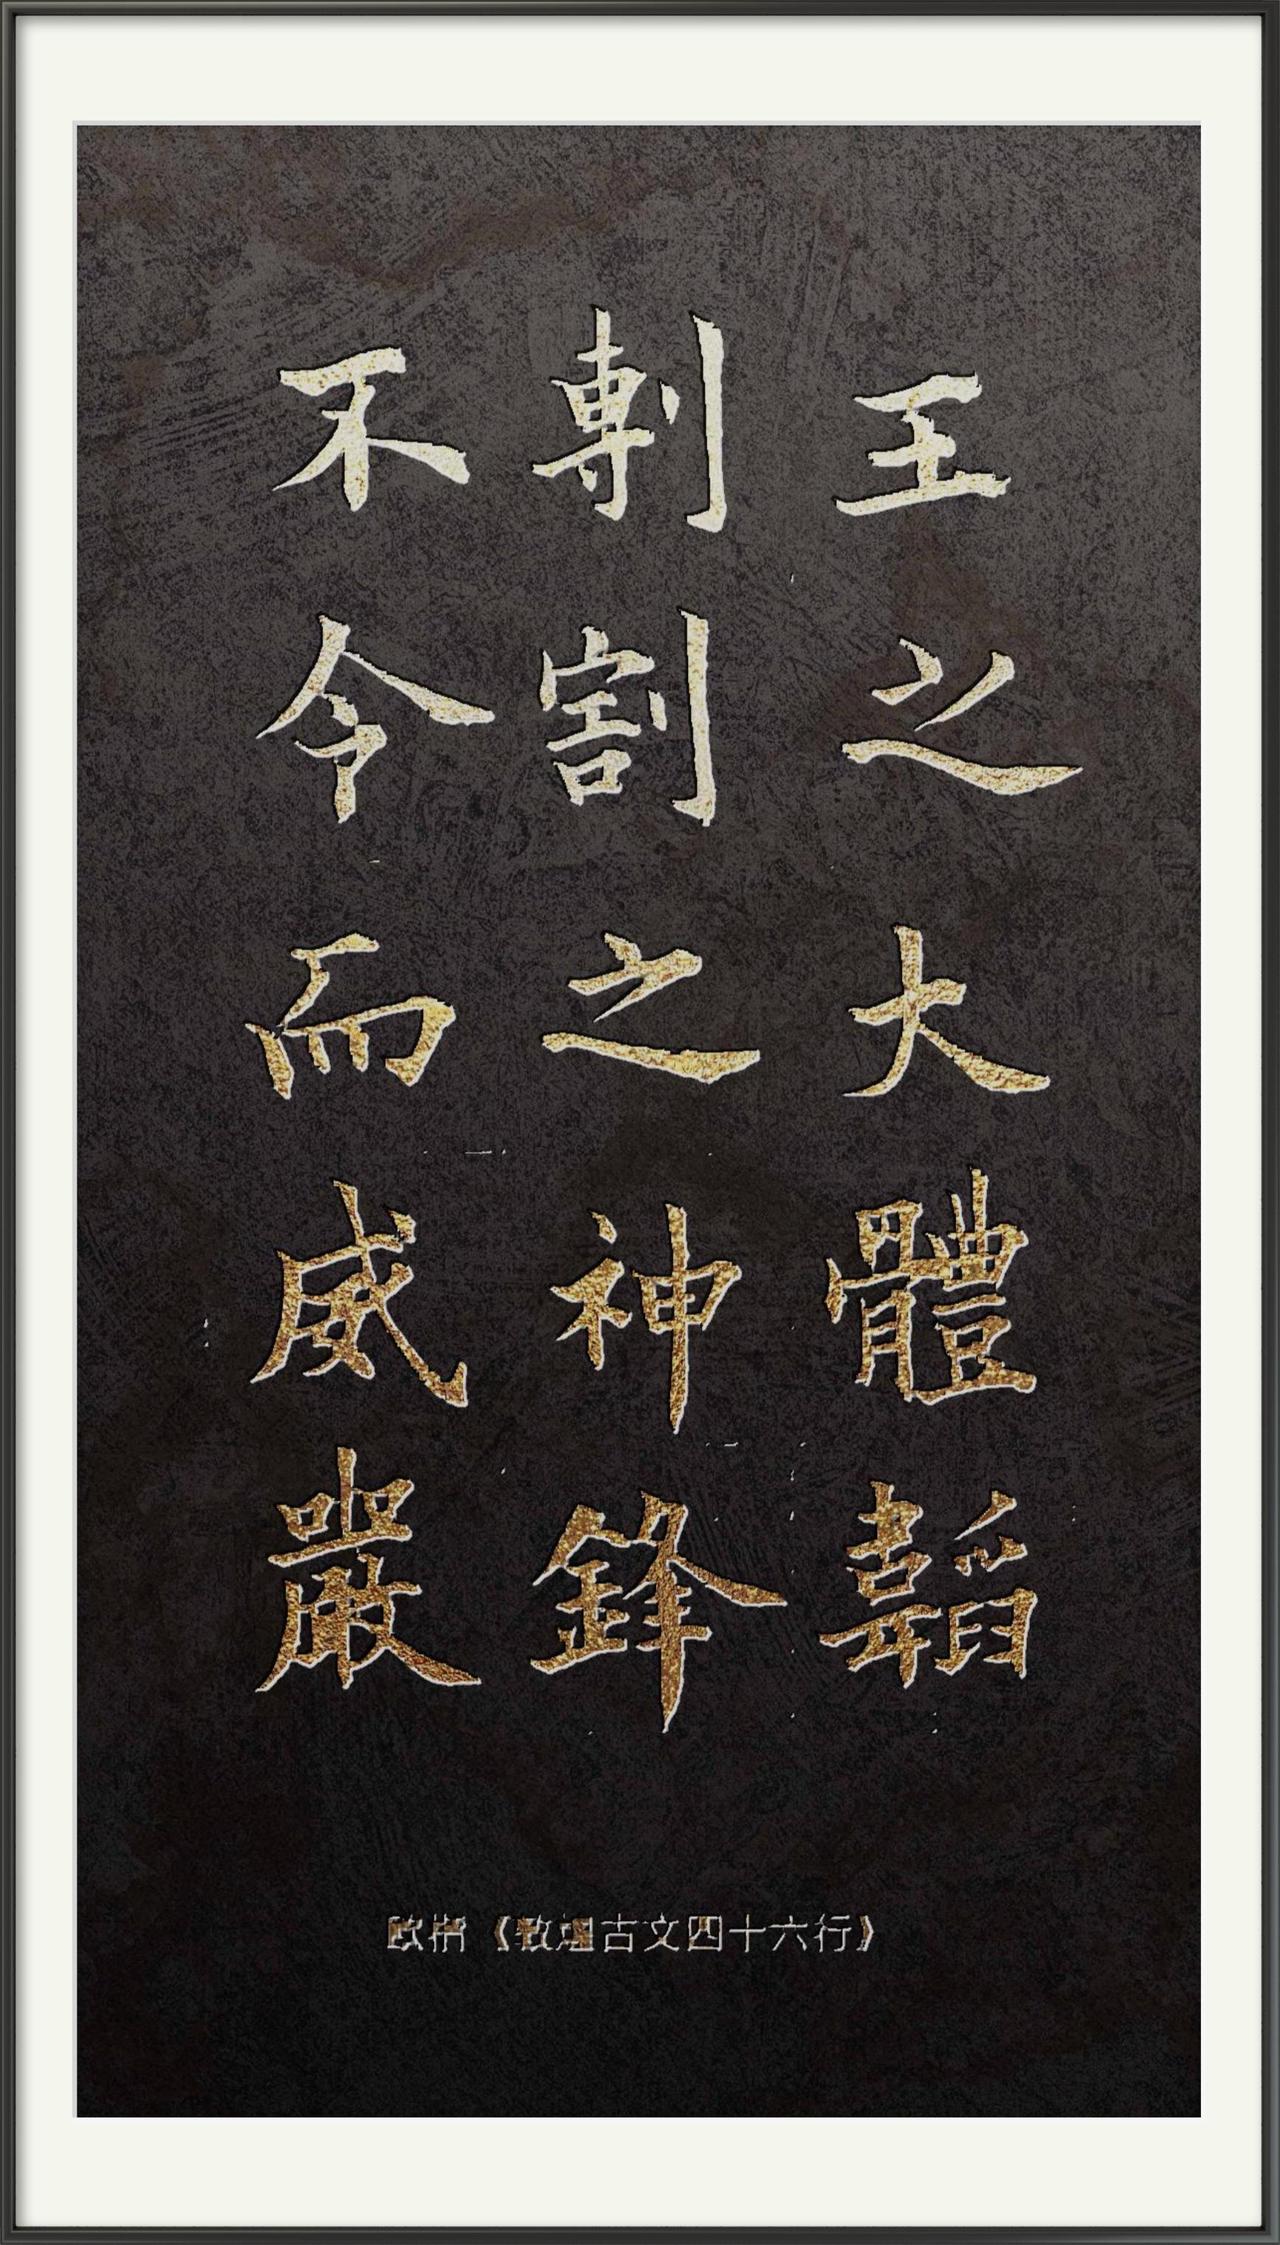 王之大體韜
剸割之神鋒
不令而威嚴
欧楷《教祖古文四十六行》